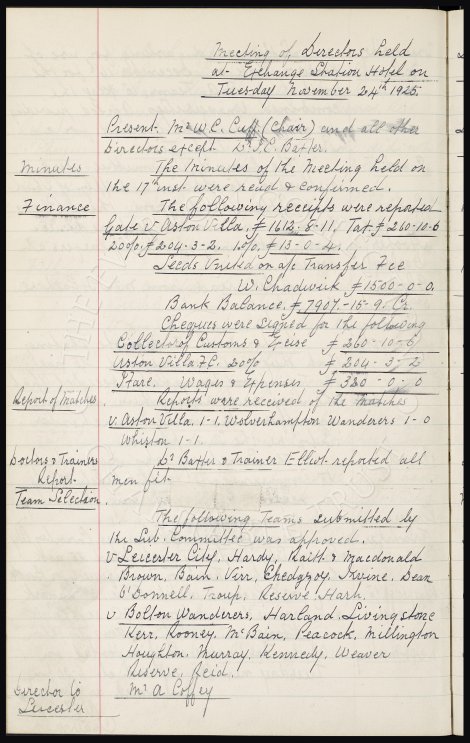 Meeting of Directors held
at Exchange Station Hotel on
Tuesday November 24th 1925.
Present. Mr W.C. Cuff (Chair) and all other
Directors except Dr J.C. Baxter.
Minutes The Minutes of the Meeting held on
the 17th inst were read & confirmed.
Finance The following receipts were reported
Gate v Aston Villa. £1612-8-11, Tax £260-10-6
20% £204-3-2. 1% £13-0-4.
Leeds United on a/c Transfer Fee
W. Chadwick £1500-0-0.
Bank Balance. £7907-15-9. Cr.
Cheques were signed for the following
Collector of Customs & Excise £260-10-6
Aston Villa F.C. 20% £204-3-2
Hare. Wages & Expenses £380-0-0
Report of Matches Reports were received of the Matches
v Aston Villa. 1-1. Wolverhampton Wanderers 1-0
Whiston 1-1.
Doctors & Trainers Dr Baxter & Trainer Elliot reported all
Report. men fit.
Team Selection
The following Teams submitted by
the Sub. Committee was approved.
v Leicester City. Hardy, Raitt & Macdonald
Brown, Bain, Virr, Chedgzoy, Irvine, Dean
O'Donnell, Troup, Reserve Hart.
v Bolton Wanderers, Harland, Livingstone
Kerr, Rooney, McBain, Peacock, Millington
Houghton, Murray, Kennedy, Weaver
Reserve, Reid.
Director to Mr A Coffey
Leicester